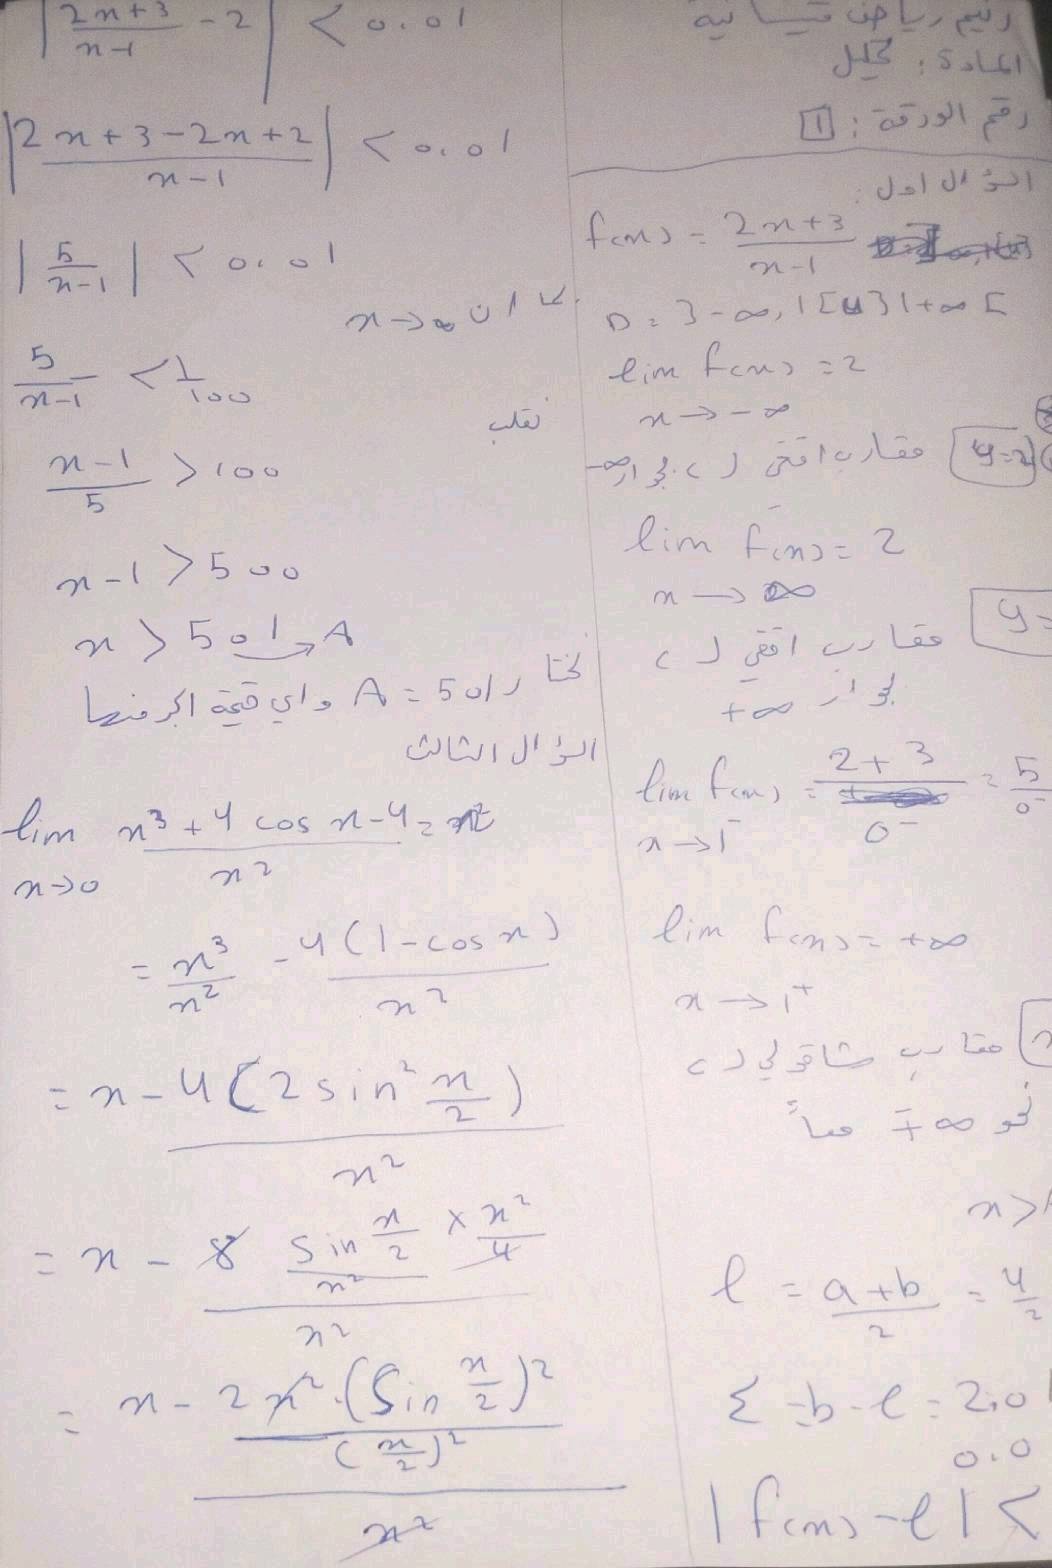 المادة: تحليل
رقم الورقة: 1
السؤال اول:
f(x) = \frac{2x+3}{x-1}
D = ]-∞, 1[ ∪ ]1 +∞[
lim f(x) = 2
x → -∞
y=2 مقارب افقي لـ c بجوار -∞
lim f(x) = 2
x → ∞
y= مقارب افقي لـ c
بجوار +∞
lim f(x) = \frac{2+3}{0^-} = \frac{5}{0^-}
x → 1^-
lim f(x) = +∞
x → 1^+
مقارب شاقولي لـ c
نحو ∓∞ معاً
x > A
l = \frac{a+b}{2} = \frac{4}{2}
ε = b - l = 2,01
0.0
|f(x) - l| <
|\frac{2x+3}{x-1} - 2| < 0.01
|\frac{2x+3-2x+2}{x-1}| < 0.01
|\frac{5}{x-1}| < 0.01
كما ان x → ∞
\frac{5}{x-1} < \frac{1}{100}
نقلب
\frac{x-1}{5} > 100
x-1 > 500
x > 501 → A
نختار A = 501 واي قيمة اكبر منها
السؤال الثالث
lim \frac{x^3 + 4 cos x - 4}{x^2} =
x → 0
= \frac{x^3}{x^2} - \frac{4(1-cos x)}{x^2}
= x - \frac{4(2 sin^2 \frac{x}{2})}{x^2}
= x - \frac{8 \frac{sin \frac{x}{2}}{x^2} × \frac{x^2}{4}}{x^2}
= x - \frac{2x^2 · \frac{(sin \frac{x}{2})^2}{(\frac{x}{2})^2}}{x^2}